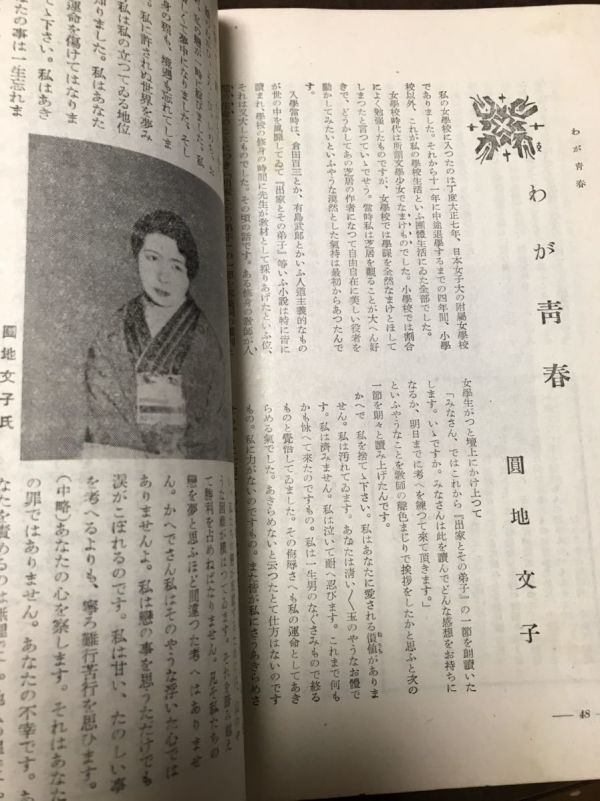 わが青春
わが靑春
圓地文子
私の女學校に入つたのは丁度大正七年、日本女子大の附屬女學校
でありました。それから十一年に中途退學するまでの四年間、小學
校以外、これが私の學校生活といふ團體生活にゐた全部でした。
女學校時代は所謂文學少女でなまけもいゝのでした。小學校では割合
によく勉强したものですが、女學校では學課を全然なまけとほして
しまつたと言つていゝでせう。當時私は芝居を觀ることが大へん好
きで、どうかしてあの芝居の作者になつて自由自在に美しい役者を
動かしてみたいといふやうな漠然とした氣持は最初からあつたんで
す。
入學當時は、倉田百三とか、有島武郎とかいふ人道主義的なもの
が世の中を風靡してゐて『出家とその弟子』等いふ小說は特に皆に
讀まれ、學校の修身の時間に先生が敎材として採りあげたといふ位、
それは又大したものでした。その頃の話です。ある修身の敎師が、
女學生がつと壇上にかけ上つて
「みなさん、ではこれから『出家とその弟子』の一節を朗讀いた
します。いゝですか。みなさんは此を讀んでどんな感想をお持ちに
なるか、明日までに考へを練つて來て頂きます。」
といふやうなことを敎師の聲色まじりで挨拶をしたかと思ふと次の
一節を朗々と讀み上げたんです。
かへで 私を捨てゝ下さい。私はあなたに愛される價値がありま
せん。私は汚れてゐます。あなたは淸い〱玉のやうなお體で
す。私は濟みません。私は泣いて耐へ忍びます。これまで何も
かも怺へて來たのですもの。私は一生男のなぐさみもので終る
ものと覺悟してゐました。その侮辱さへも私の運命としてあき
らめる氣でした。あきらめないと云つたとて仕方はないのです
もの。私に力がないのですもの。また皆が私にさうあきらめさ
48
時に綻びました。私
に許されぬ世界を夢み
しく夢中になりました。そし
身の程も、境遇も忘れてしま
私は私の立つてゐる地位
知りました。私はあなた
運命を傷けてはなりま
てゝ下さい。私はあき
たの事は一生忘れま
圓地文子氏
て勝利を占めねばなりません。凡そ私たちの
戀を夢と思ふほど間違つた考へはありませ
ん。かへでさん私はそのやうな浮いた心では
ありませんよ。私は戀の事を思うただけでも
淚がこぼれるのです。私は甘い、たのしい事
を考へるよりも、寧ろ難行苦行を思ひます。
(中略)あなたの心を察します。それはあなた
の罪ではありません。あなたの不幸です。あ
なたを責めるのは無理です。